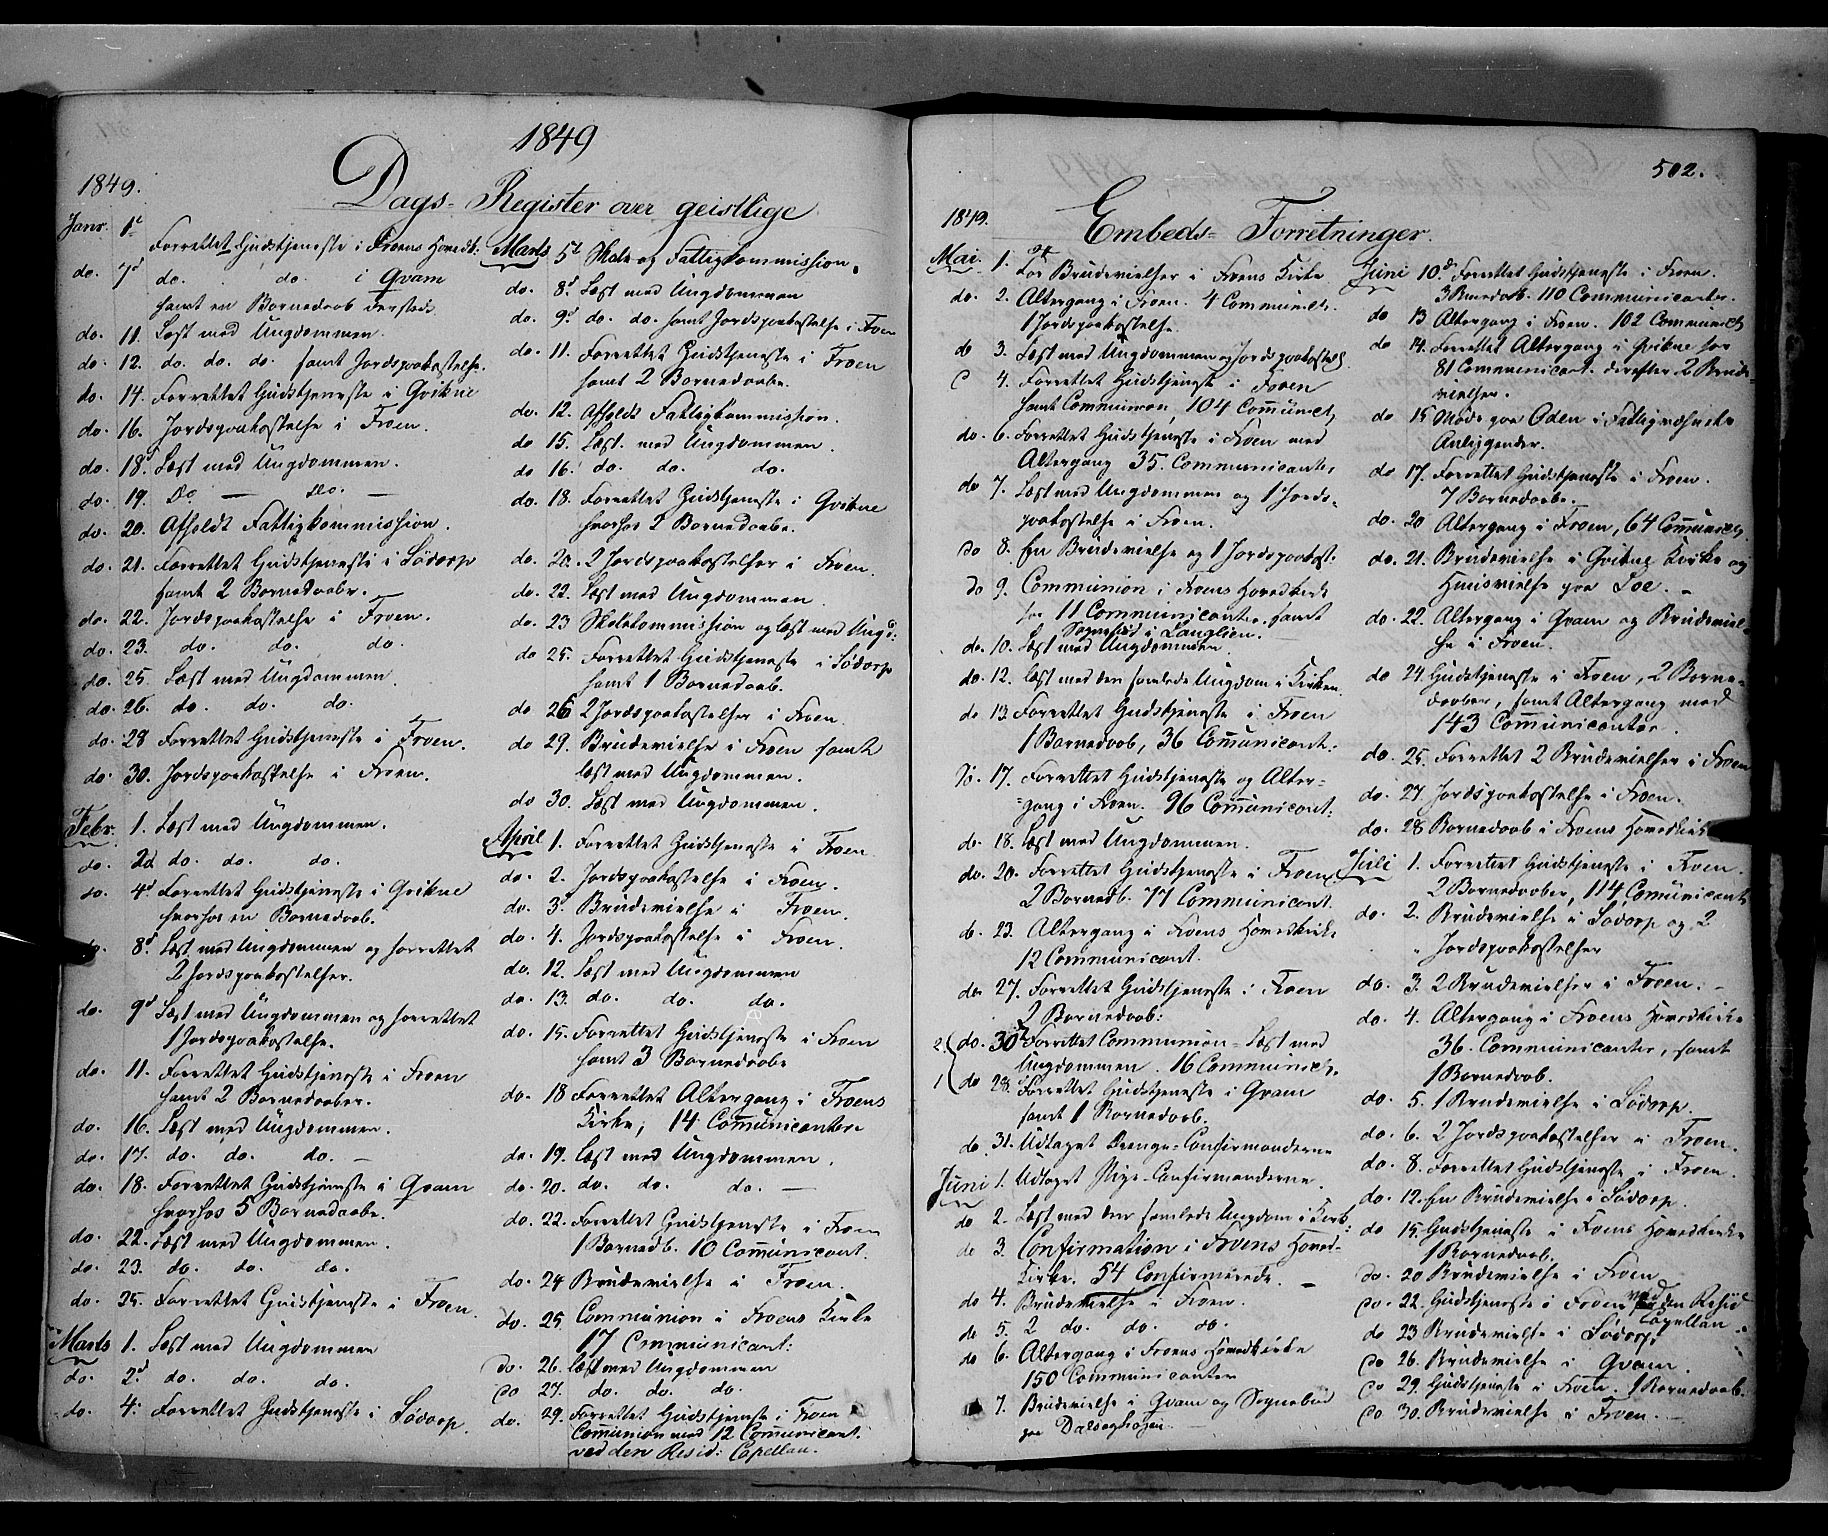 1849
Dags-Register over geistlige
1849.
Janr. 1d Forrettet Gudstjeneste i Froens Hovedk:
do. 7d do. do. i Qvam
samt en Barnedaab dersteds.
do. 11. Læst med Ungdommen.
do. 12. do. do. do samt Jordspaakastelse.
do. 14. Forrettet Gudstjeneste i Qvikne
do. 16. Jordspaakastelse i Froen.
do. 18d Læst med Ungdommen.
do. 19. Do. — Do. —
do. 20. Afholdt Fattigkommission.
do. 21. Forrettet Gudstjeneste i Sødorp
samt 2 Barnedaabe.
do. 22. Jordspaakastelse i Froen.
do. 23. do. do. do.
do. 25. Læst med Ungdommen.
do. 26. do. do. do.
do. 28 Forrettet Gudstjeneste i Froen.
do. 30. Jordspaakastelse i Froen.
Febr. 1. Læst med Ungdommen.
do. 2d do. do. do.
do. 4d Forrettet Gudstjeneste i Qvikne
hvorhos en Barnedaab.
do. 8d Læst med Ungdommen og forrettet
2 Jordspaakastelser.
do. 9d Læst med Ungdommen og forrettet
1 Jordspaakastelse.
do. 11. Forrettet Gudstjeneste i Froen
samt 2 Barnedaaber.
do. 16. Læst med Ungdommen.
do. 17. do. do. do. —
do. 18. Forrettet Gudstjeneste i Qvam
hvorhos 5 Barnedaabe.
do. 22. Læst med Ungdommen.
do. 23. do. do. do.
do. 25. Forrettet Gudstjeneste i Froen.
Marts 1. Læst med Ungdommen
do. 2d do. do. do.
do. 4. Forrettet Gudstjeneste i Sødorp.
Marts 5t Skole og Fattigkommission.
do. 8d Læst med Ungdommen
do. 9d do. do. samt Jordspaakastelse i Froen
do. 11. Forrettet Gudstjeneste i Froen
samt 2 Barnedaabe.
do. 12. Afholdt Fattigkommission.
do 15. Læst med Ungdommen.
do 16. do. do. do.
do. 18. Forrettet Gudstjeneste i Qvikne
hvorhos 2 Barnedaabe.
do. 20. 2 Jordspaakastelser i Froen.
do. 22. Læst med Ungdommen.
do. 23 Skolekommission og læst med Ungd:
do 25. Forrettet Gudstjeneste i Sødorp
samt 1 Barnedaab.
do 26 2 Jordspaakastelser i Froen.
do 29. Brudevielse i Froen samt
læst med Ungdommen.
do 30. Læst med Ungdommen.
April 1. Forrettet Gudstjeneste i Froen
do. 2. Jordspaakastelse i Froen.
do. 3d Brudevielse i Froen.
do. 4. Jordspaakastelse i Froen.
do. 12. Læst med Ungdommen
do. 13. do. do. do.
do. 15. Forrettet Gudstjeneste i Froen
samt 3 Barnedaabe
do. 18 Forrettet Altergang i Froens
Kirke, 14 Comunicanter
do. 19. Læst med Ungdommen.
do. 20. do. do. do. —
do. 22. Forrettet Gudstjeneste i Froen
1 Barnedb. 10 Comunicant.
do. 24 Brudevielse i Froen.
do. 25 Communion i Froens Kirke
17 Communicant:
do. 26. Læst med Ungdommen
do 27. do. do. do.
do. 29. Forrettet Gudstjeneste i Froen
Comunion med 12 Comunicant.
ved den Resid: Capellan.
502.
Embeds-Forretninger.
1849.
Mai. 1. To Brudevielser i Froens Kirke
do. 2. Altergang i Froen. 4 Communicts.
1 Jordspaakastelse.
do 3. Læst med Ungdommen og Jordspaakastelse
do 4. Forrettet Gudstjeneste i Froen
samt Communion, 104 Comunict,
do. 6. Forrettet Gudstjeneste i Froen med
Altergang 35. Communicanter
do 7. Læst med Ungdommen og 1 Jords-
paakastelse i Froen.
do 8. En Brudevielse og 1 Jordspaakast.
do 9. Communion i Froens Hovedkirke
for 11 Communicanter, samt
Sognebud i Langlien.
do. 10. Læst med Ungdommen
do. 12. Læst med den samlede Ungdom i Kirken.
do 13. Forrettet Gudstjeneste i Froen
1 Barnedaab, 36 Comunicant:
do. 17. Forrettet Gudstjeneste og Alter-
gang i Froen. 96 Comunicant:
do. 18. Læst med Ungdommen.
do. 20. Forrettet Gudstjeneste i Froen
2 Barnedb. 77 Communicant.
do. 23. Altergang i Froens Hovedkirke
12 Communicant.
do. 27. Forrettet Gudstjeneste i Froen
2 Barnedaab:
2. do. 30 Forrettet Communion - Læst med
Ungdommen. 16 Communicts.
1. do 28. Forrettet Gudstjeneste i Qvam
samt 1 Barnedaab.
do. 31. Udtaget Drenge-Confirmanderne
Juni 1. Udtaget Pige-Confirmanderne.
do 2. Læst med den samlede Ungdom i Kirk:
do 3. Confirmation i Froens Hoved-
Kirke. 54 Confirmerede. —
do 4. Brudevielse i Froen.
do 5. 2 do. do. do.
do 6. Altergang i Froens Hovedkirke
150 Communicanter
7. Brudevielse i Qvam og Sognebud
paa
Juni 10d Forrettet Gudstjeneste i Froen.
3 Barnedaab. 110 Communicanter.
do 13 Altergang i Froen. 102 Communict
do 14. Forrettet Altergang i Qvikne for
81 Communicant. derefter 2 Brude-
vielser.
do 15 Møde paa Oden i Fattigvæsenets
Anliggender.
do 17. Forrettet Gudstjeneste i Froen.
7 Barnedaabe.
do. 20 Altergang i Froen, 64 Comunict,
do. 21. Brudevielse i Qvikne Kirke og
Huusvielse paa Loe. —
do. 22. Altergang i Qvam og Brudeviel-
se i Froen.
do 24. Gudstjeneste i Froen, 2 Barne-
daaber, samt Altergang med
143 Comunicanter.
do. 25. Forrettet 2 Brudevielser i Froen
do. 27. Jordspaakastelse i Froen.
do. 28 Barnedaab i Froens Hovedkirke
Juli 1. Forrettet Gudstjeneste i Froen.
2 Barnedaaber, 114 Comunicant
do. 2. Brudevielse i Sødorp og 2
Jordspaakastelser
do. 3. 2 Brudevielser i Froen. —
do. 4. Altergang i Froens Hovedkirke
36. Communicanter, samt
1 Barnedaab.
do. 5. 1 Brudevielse i Sødorp.
do. 6. 2 Jordspaakastelser i Froen.
do. 8. Forrettet Gudstjeneste i Froen.
do. 12. En Brudevielse i Sødorp.
do 15. Gudstjeneste i Froens Hovedkirke
1 Barnedaab.
do. 20 Brudevielse i Froen
do. 22. Gudstjeneste i Froen ved den Resid
Capellan.
do 23 Brudevielse i Sødorp
do 26. Brudevielse i Qvam.
do 29. Gudstjeneste i Froen. 1 Barnedaab.
do 30. Brudevielse i Froen. —